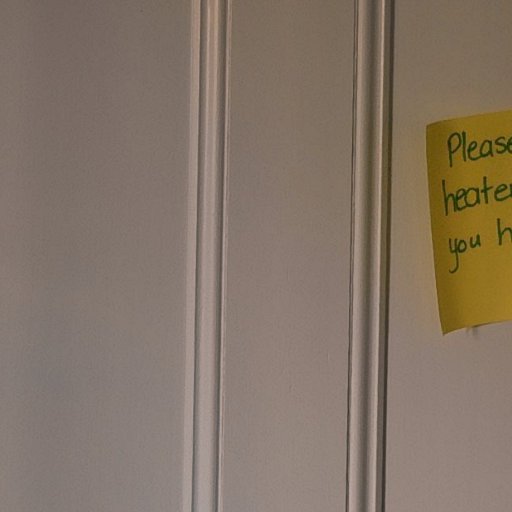 Please
heater
you h